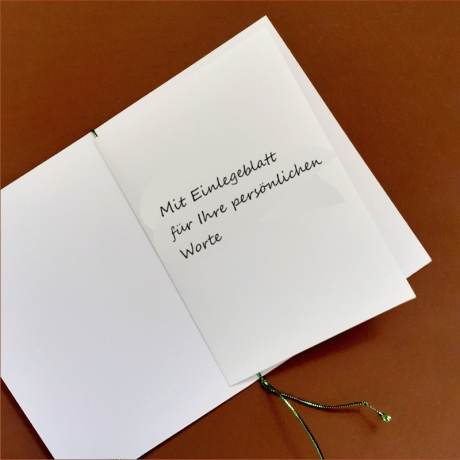 Mit Einlegeblatt
für Ihre persönlichen
Worte